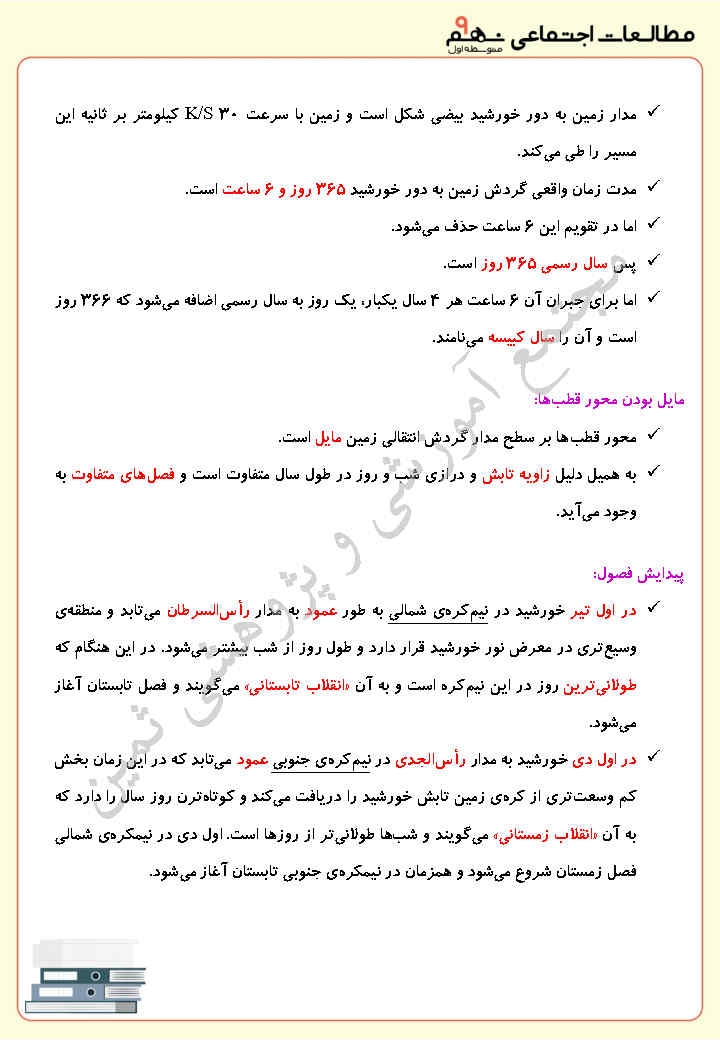 مطالعات اجتماعی نهم ۹
متوسطه اول
✓ مدار زمین به دور خورشید بیضی شکل است و زمین با سرعت ۳۰ K/S کیلومتر بر ثانیه این
مسیر را طی می‌کند.
✓ مدت زمان واقعی گردش زمین به دور خورشید ۳۶۵ روز و ۶ ساعت است.
✓ اما در تقویم این ۶ ساعت حذف می‌شود.
✓ پس سال رسمی ۳۶۵ روز است.
✓ اما برای جبران آن ۶ ساعت هر ۴ سال یکبار، یک روز به سال رسمی اضافه می‌شود که ۳۶۶ روز
است و آن را سال کبیسه می‌نامند.
مایل بودن محور قطب‌ها:
✓ محور قطب‌ها بر سطح مدار گردش انتقالی زمین مایل است.
✓ به همیل دلیل زاویه تابش و درازی شب و روز در طول سال متفاوت است و فصل‌های متفاوت به
وجود می‌آید.
پیدایش فصول:
✓ در اول تیر خورشید در نیم‌کره‌ی شمالی به طور عمود به مدار رأس‌السرطان می‌تابد و منطقه‌ی
وسیع‌تری در معرض نور خورشید قرار دارد و طول روز از شب بیشتر می‌شود. در این هنگام که
طولانی‌ترین روز در این نیم‌کره است و به آن «انقلاب تابستانی» می‌گویند و فصل تابستان آغاز
می‌شود.
✓ در اول دی خورشید به مدار رأس‌الجدی در نیم‌کره‌ی جنوبی عمود می‌تابد که در این زمان بخش
کم وسعت‌تری از کره‌ی زمین تابش خورشید را دریافت می‌کند و کوتاه‌ترن روز سال را دارد که
به آن «انقلاب زمستانی» می‌گویند و شب‌ها طولانی‌تر از روزها است. اول دی در نیمکره‌ی شمالی
فصل زمستان شروع می‌شود و همزمان در نیمکره‌ی جنوبی تابستان آغاز می‌شود.
مجتمع آموزشی و پژوهشی ثمین